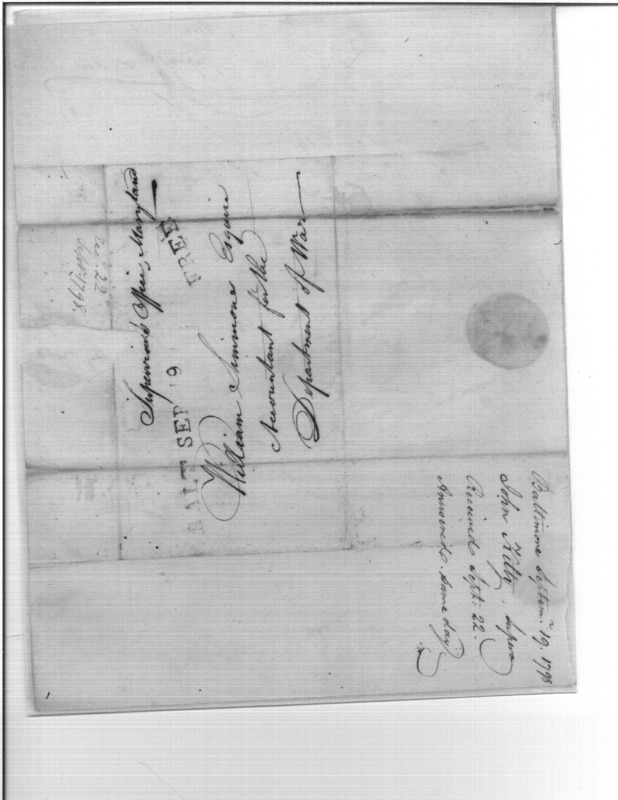 Supervisor's Office, Maryland
FREE
BALT SEP 19
William Simmons Esquire
Accountant for the
Department of War
Rec. 22
Sept. 1798.
Baltimore Septemr. 19. 1798
John Kilty. Superv
Received Sept: 22.
Answered same day.